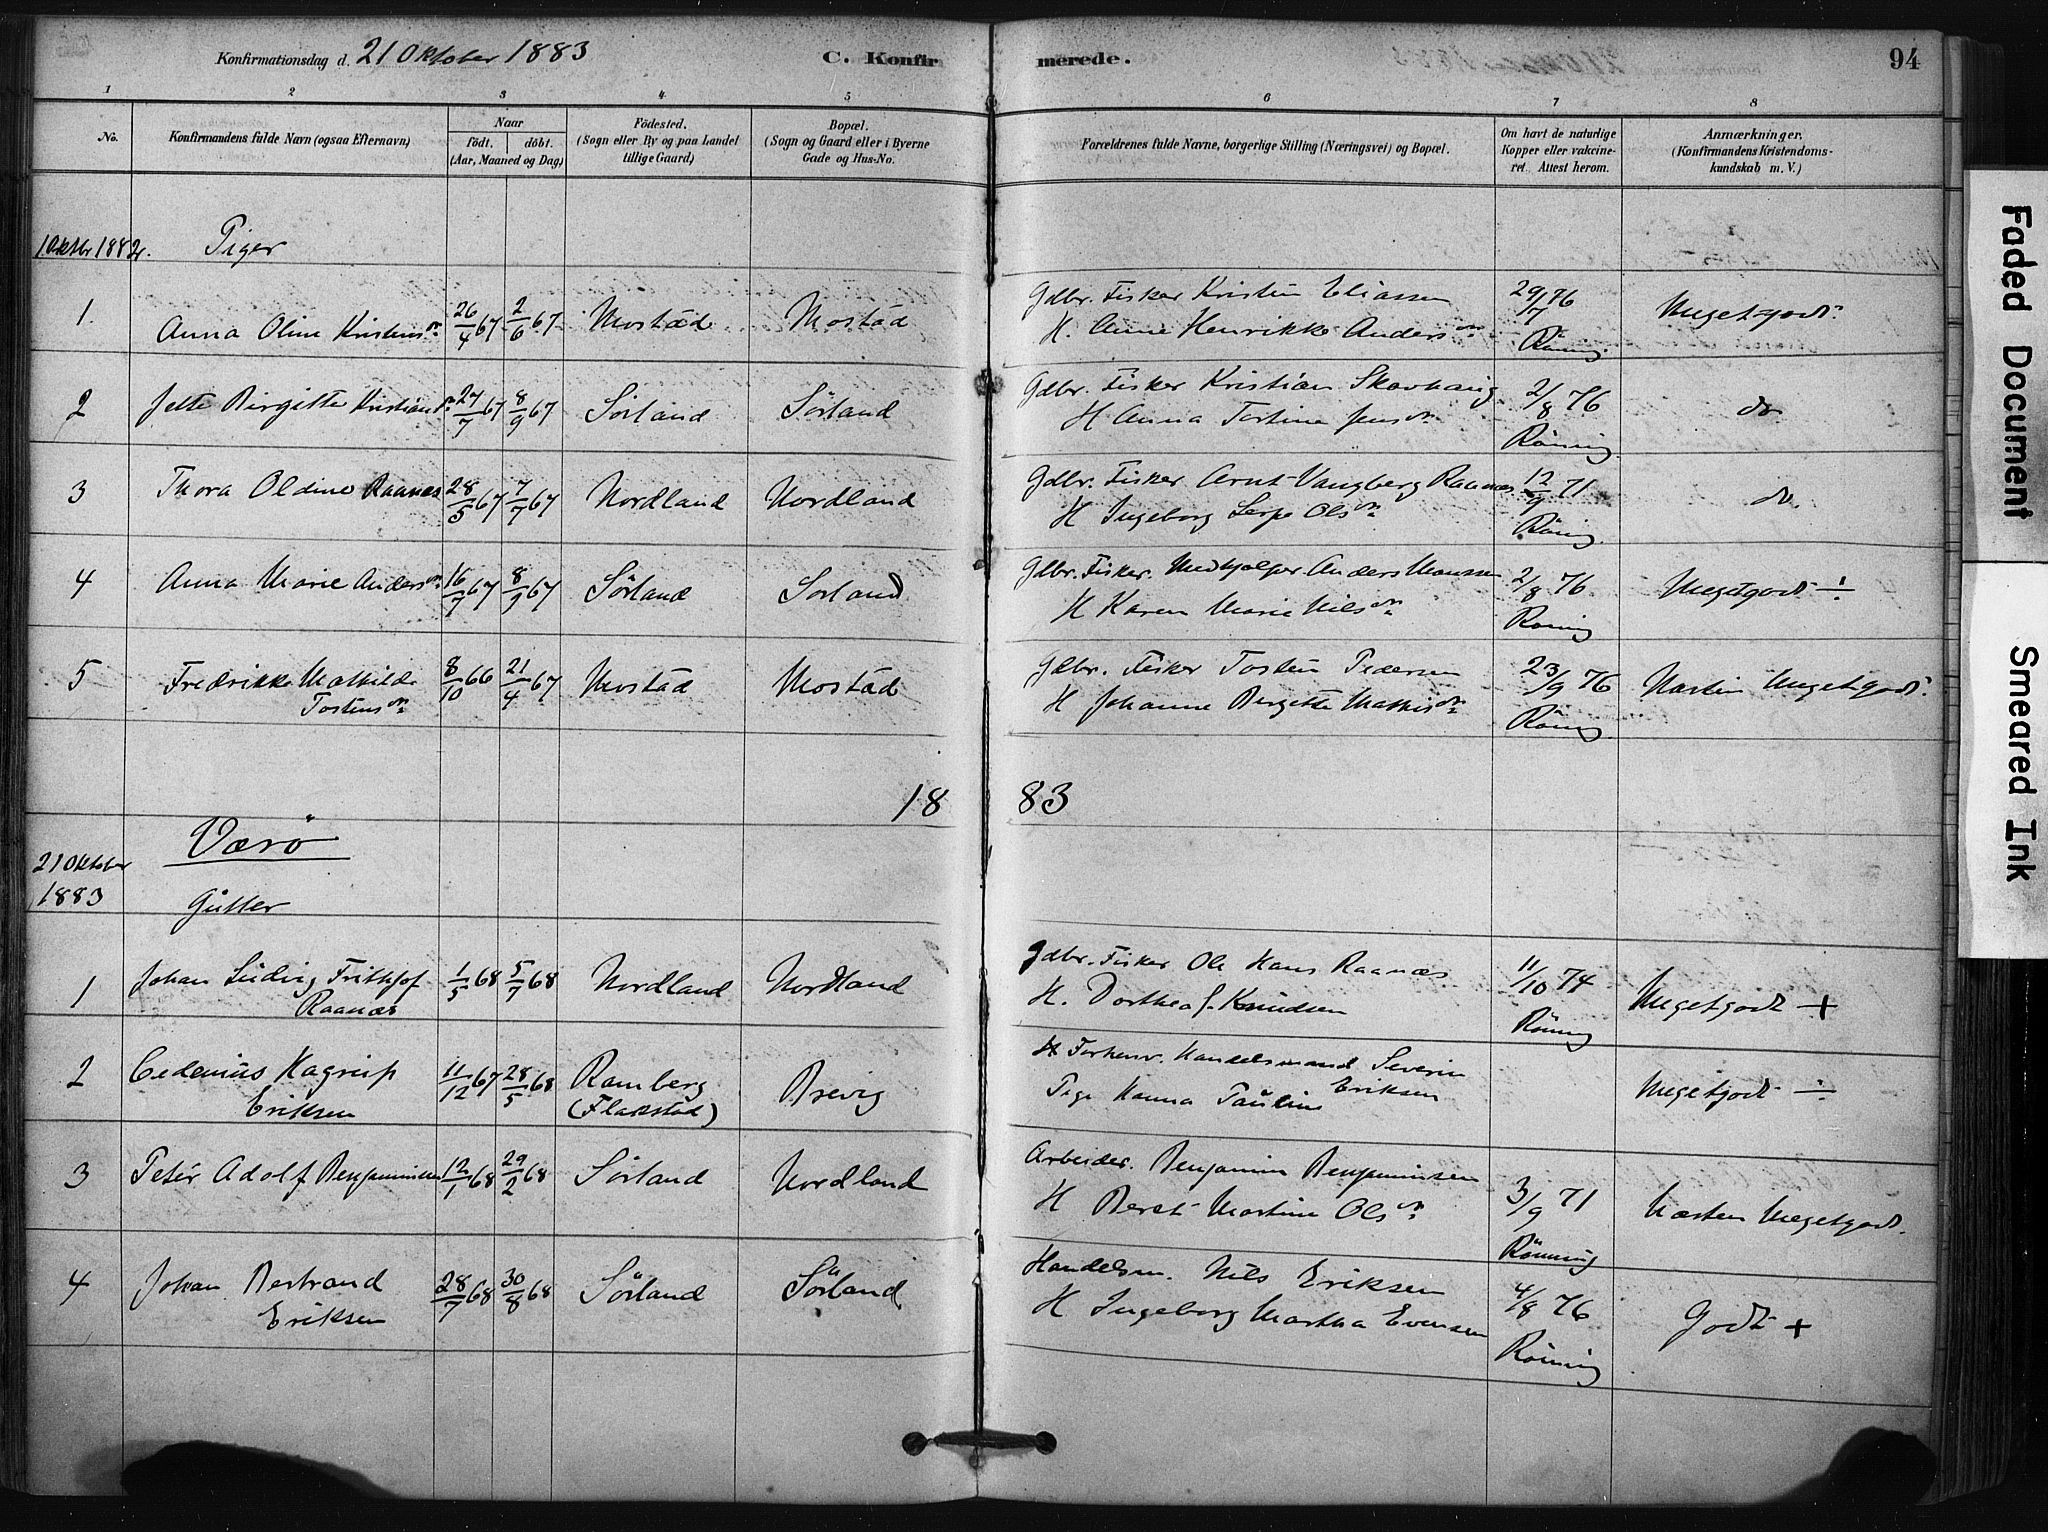 Konfirmationsdag d. 21 Oktober 1883 C. Konfirmerede. 94
1 2 3 4 5 6 7 8
No.
Konfirmandens fulde Navn (ogsaa Efternavn)
Naar
födt. döbt.
(Aar, Maaned og Dag)
Födested.
(Sogn eller By og paa Landet
tillige Gaard)
Bopæl.
(Sogn og Gaard eller i Byerne
Gade og Hus-No.
Forældrenes fulde Navne, borgerlige Stilling (Næringsvei) og Bopæl.
Om havt de naturlige
Kopper eller vakcine-
ret. Attest herom.
Anmærkninger.
(Konfirmandens Kristendoms-
kundskab m. V.)
1 Oktbr 1882. Piger
1. Anna Oline Kristensdr. 26/4 67 2/6 67 Mostad Mostad
Gdbr. Fisker Kristen Eliassen
H. Anne Henrikke Andersdr.
29/7 76
Röning.
Megetgodt.
2 Jette Birgitte Kristiansdr. 27/7 67 8/9 67 Sörland Sörland
Gdbr. Fisker Kristian Skavhaug
H Anna Tostine Jensdr.
2/8 76
Röning.
do
3 Thora Oldine Raanæs 28/5 67 7/7 67 Nordland Nordland
Gdbr. Fisker Arnt Vangberg Raanæs
H Ingeborg Olsdr.
12/9 71
Röning.
do.
4 Anna Marie Andersdr. 16/7 67 8/9 67 Sörland Sorland
Gdbr. Fisker. Medhjælper Anders Monssen
H Karen Marie Nilsdr.
2/8 76
Roning
Megetgodt ÷
5 Fredrikke Mathilde
Tostensdr. 8/10 66 21/4 67 Mostad Mostad
Gdbr. Fisker Tosten Pedersen
H Johanne Bergitte Mathisdr.
23/9 76
Röning.
Næsten Megetgodt.
18 83
Værö
21 Oktober
1883
Gutter
1 Johan Ludvig Frithjof
Raanæs 1/5 68 5/7 68 Nordland Nordland
Gdbr. Fisker Ole Hans Raanæs
H. Dorthea f. Knudsen
11/10 74
Röning
Megetgodt +
2 Cedenius Hagrup
Eriksen 11/12 67 28/5 68 Ramberg
(Flakstad) Brevig
Forhenv. Handelsmand Severin
Eriksen
Pige Hanna Pauline
Megetgodt ÷
3 Peter Adolf Benjaminsen 12/1 68 29/2 68 Sörland Nordland
Arbeider. Benjamin Benjaminsen
H Beret Martine Olsdr.
3/9 71
Rönning
Næsten Megetgodt.
4 Johan Bertrand
Eriksen 28/7 68 30/8 68 Sörland Sörland
Handelsm. Nils Eriksen
H Ingeborg Martha Evensen
4/8 76
Röning
Godt +
Faded Document
Smeared Ink